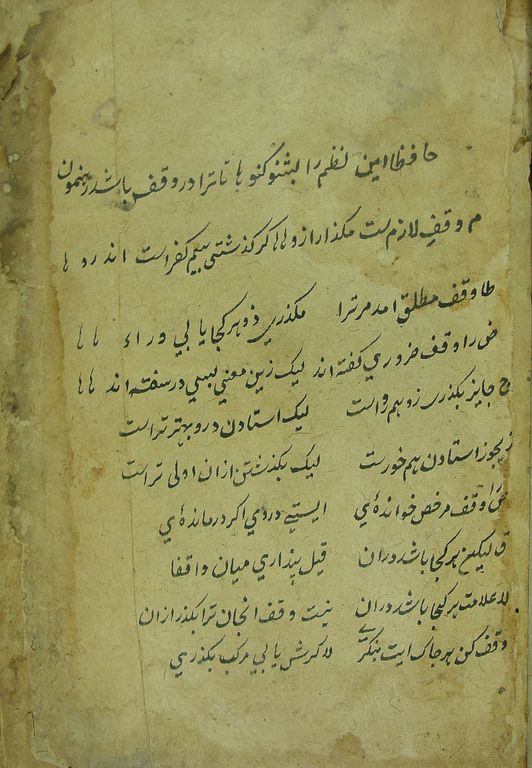 حافظا این نظم را بشنو کنو ها تا ترا در وقف باشد رهنمون
م وقف لازم است مکذر ازو ها کر کذشتی بیم کفر است اندرو ها
ط وقف مطلق امد مر ترا مکذری ذو هر کجا یابی ورا ء ها ها
ض را وقف ضروري کفته اند لیک زین معني بسي در سفته اند ها ها
ج جایز بکذری زو هم رواست لیک استادن درو بهتر تراست
ز یجوز استادن هم خورست لیک بکذشتن ازان اولی تر است
ص وقف مرخص خواندۀ ي ایستي در وي اکر درماندۀ ي
ق لیکن هر کجا باشد دران قیل پنداري میان واقفا
لا علامت هر کجا باشد دران نیست وقف انجان ترا بکذر ازان
وقف کن هر جا که ایت بنکري لا کرش یابي مرکب بکذري